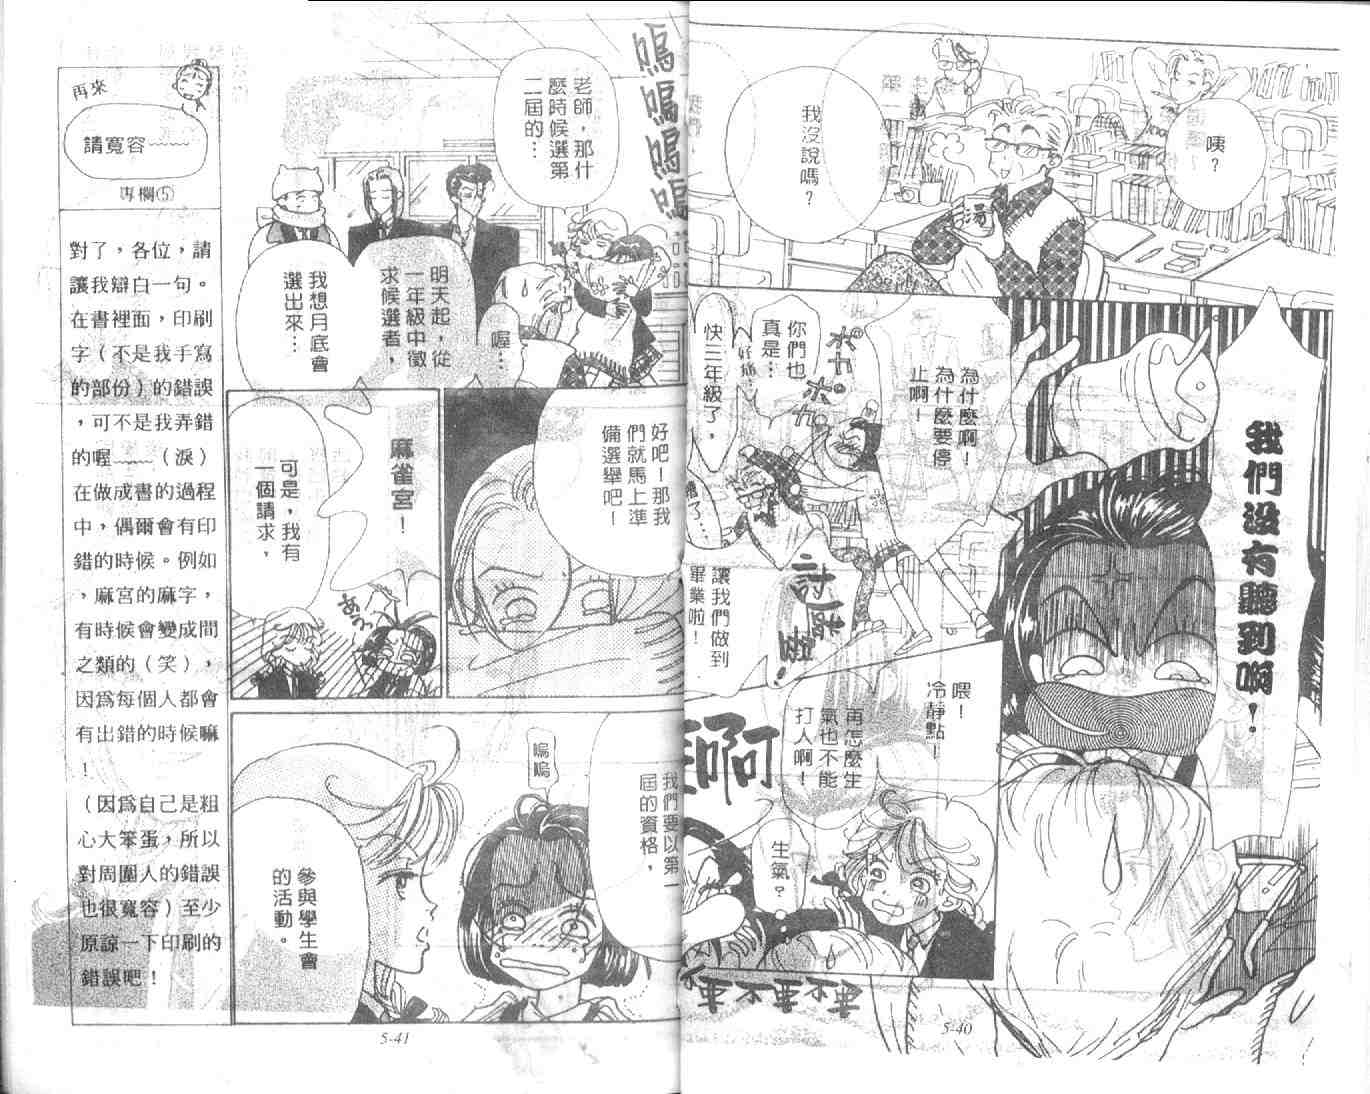 咦?
我沒說嗎?
湯
我們沒有聽到啊!
為什麼啊!
為什麼要停
止啊!
ポカポカ
你們也
真是…
好痛…
快三年級了,
糟了…
討厭啦!
讓我們做到
畢業啦!
喂!
冷靜點!
再怎麼生
氣也不能
打人啊!
啊
生氣?
不要不要
5-40
嗚嗚嗚嗚
老師,那什
麼時候選第
二屆的…
喔…
明天起,從
一年級中徵
求候選者,
我想月底會
選出來…
好吧!那我
們就馬上準
備選舉吧!
麻雀宮!
可是,我有
一個請求,
あっ
我們要以第一
屆的資格,
嗚嗚
參與學生會
的活動。
再來
請寬容
專欄⑤
對了,各位,請
讓我辯白一句。
在書裡面,印刷
字(不是我手寫
的部份)的錯誤
,可不是我弄錯
的喔﹏﹏(淚)
在做成書的過程
中,偶爾會有印
錯的時候。例如
,麻宮的麻字,
有時候會變成間
之類的(笑),
因為每個人都會
有出錯的時候嘛
!
(因為自己是粗
心大笨蛋,所以
對周圍人的錯誤
也很寬容)至少
原諒一下印刷的
錯誤吧!
5-41